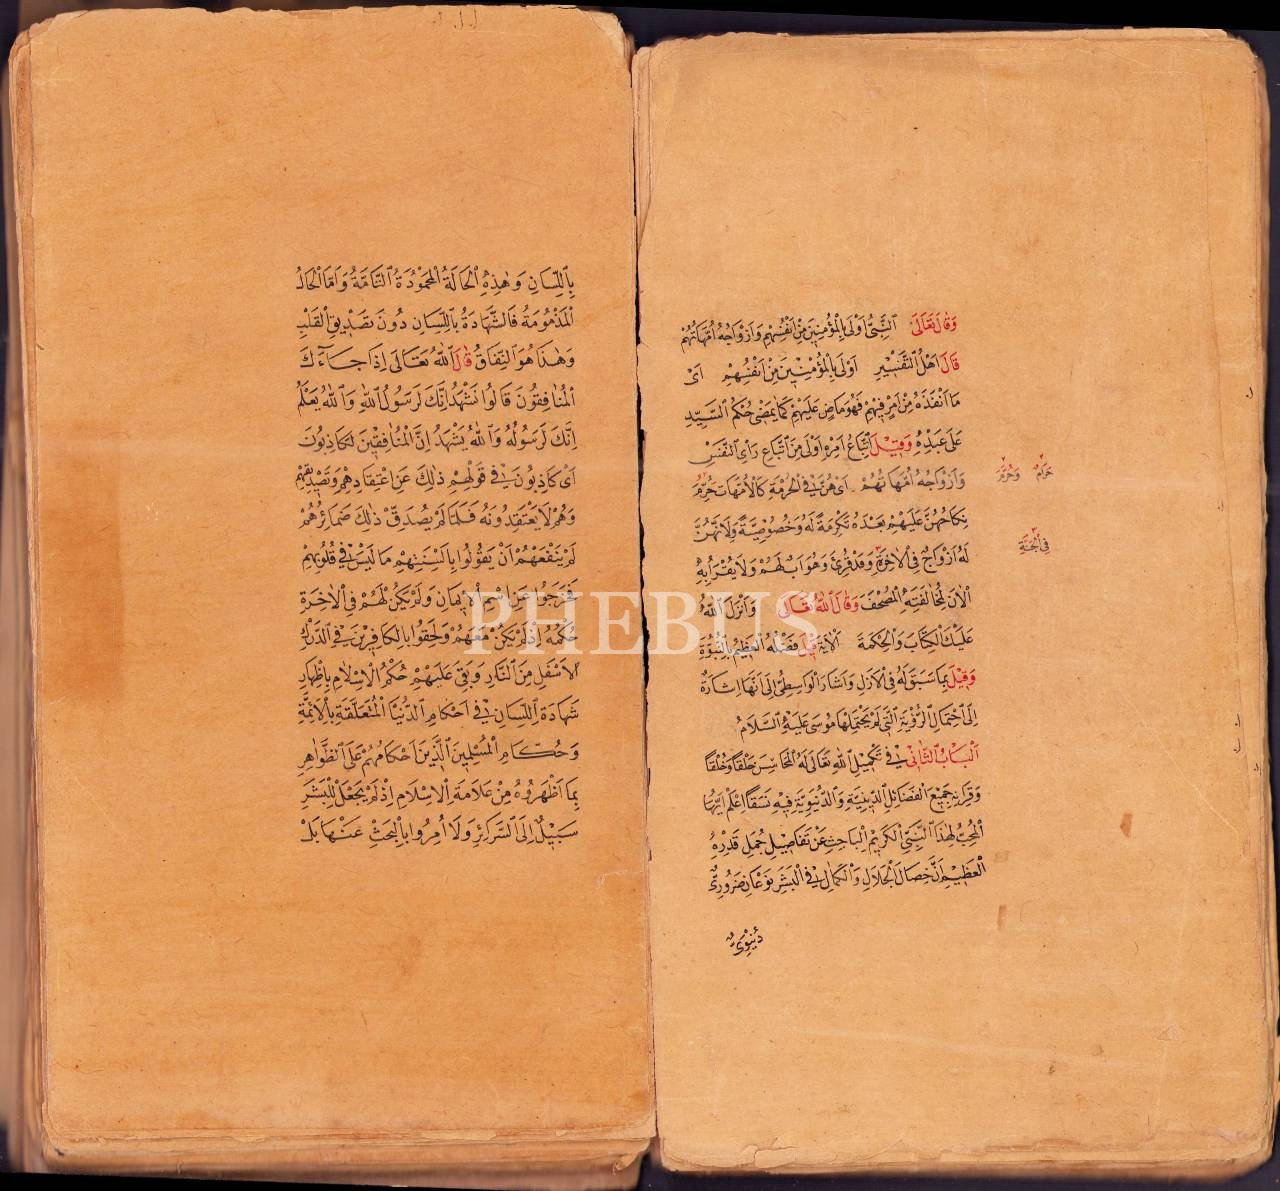 وَقَالَ تَعَالَى اَلنَّبِيُّ اَوْلٰى بِالْمُؤْمِنِينَ مِنْ اَنْفُسِهِمْ وَاَزْوَاجُهُ اُمَّهَاتُهُمْ
قَالَ اَهْلُ التَّفْسِيْرِ اَوْلٰى بِالْمُؤْمِنِينَ مِنْ اَنْفُسِهِمْ اَىْ
مَا اَنْفَذَهُ مِنْ اَمْرٍ فِيهِمْ فَهُوَ مَاضٍ عَلَيْهِمْ كَمَا يَمْضِى حُكْمُ السَّيِّدِ
عَلٰى عَبْدِهِ وَقِيْلَ اتِّبَاعُ اَمْرِهِ اَوْلٰى مِنَ اتِّبَاعِ رَاْىِ النَّفْسِ
وَاَزْوَاجُهُ اُمَّهَاتُهُمْ اَىْ هُنَّ فِى الْحُرْمَةِ كَالْاُمَّهَاتِ حُرِّمَ
نِكَاحُهُنَّ عَلَيْهِمْ بَعْدَهُ تَكْرِمَةً لَهُ وَخُصُوصِيَّةً وَلِاَنَّهُنَّ
لَهُ اَزْوَاجٌ فِى الْاٰخِرَةِ وَقَدْ قُرِئَ وَهُوَ اَبٌ لَهُمْ وَلَا يُقْرَاُ بِهِ
الْاٰنَ لِمُخَالَفَتِهِ الْمُصْحَفَ وَقَالَ اللّٰهُ تَعَالٰى وَاَنْزَلَ اللّٰهُ
عَلَيْكَ الْكِتَابَ وَالْحِكْمَةَ الْاٰيَةَ قِيْلَ فَضْلُهُ الْعَظِيْمُ بِالنُّبُوَّةِ
وَقِيْلَ بِمَا سَبَقَ لَهُ فِى الْاَزَلِ وَاَشَارَ الْوَاسِطِىُّ اِلٰى اَنَّهَا اِشَارَةٌ
اِلَى احْتِمَالِ الرُّؤْيَةِ الَّتِى لَمْ يَحْتَمِلْهَا مُوسٰى عَلَيْهِ السَّلَامُ
اَلْبَابُ الثَّانِىْ فِى تَكْمِيْلِ اللّٰهِ تَعَالٰى لَهُ الْمَحَاسِنَ خَلْقًا وَخُلْقًا
وَقِرَانِهِ جَمِيْعَ الْفَضَائِلِ الدِّيْنِيَّةِ وَالدُّنْيَوِيَّةِ فِيْهِ نَسَقًا اِعْلَمْ اَيُّهَا
الْمُحِبُّ لِهٰذَا النَّبِىِّ الْكَرِيْمِ الْبَاحِثِ عَنْ تَفَاصِيْلِ جُمَلِ قَدْرِهِ
الْعَظِيْمِ اَنَّ خِصَالَ الْجَلَالِ وَالْكَمَالِ فِى الْبَشَرِ نَوْعَانِ ضَرُورِىٌّ
دُنْيَوِىٌّ
حَرَامٌ وَحُرِّمَ
فِى الْجَنَّةِ
بِاللِّسَانِ وَهٰذِهِ الْحَالَةُ الْمَحْمُوْدَةُ التَّامَّةُ وَاَمَّا الْحَالُ
الْمَذْمُوْمَةُ فَالشَّهَادَةُ بِاللِّسَانِ دُوْنَ تَصْدِيْقِ الْقَلْبِ
وَهٰذَا هُوَ النِّفَاقُ قَالَ اللّٰهُ تَعَالٰى اِذَا جَاءَكَ
الْمُنَافِقُوْنَ قَالُوا نَشْهَدُ اِنَّكَ لَرَسُوْلُ اللّٰهِ وَاللّٰهُ يَعْلَمُ
اِنَّكَ لَرَسُوْلُهُ وَاللّٰهُ يَشْهَدُ اِنَّ الْمُنَافِقِيْنَ لَكَاذِبُوْنَ
اَىْ كَاذِبُوْنَ فِى قَوْلِهِمْ ذٰلِكَ عَنِ اعْتِقَادِهِمْ وَتَصْدِيْقِهِمْ
وَهُمْ لَا يَعْتَقِدُوْنَهُ فَلَمَّا لَمْ يُصَدِّقْ ذٰلِكَ ضَمَائِرُهُمْ
لَمْ يَنْفَعْهُمْ اَنْ يَقُوْلُوا بِاَلْسِنَتِهِمْ مَا لَيْسَ فِى قُلُوْبِهِمْ
فَخَرَجُوا عَنِ اسْمِ الْاِيْمَانِ وَلَمْ يَكُنْ لَهُمْ فِى الْاٰخِرَةِ
حُكْمُهُ اِذْ لَمْ يَكُنْ مَعَهُمْ وَلَحِقُوا بِالْكَافِرِيْنَ فِى الدَّرْكِ
الْاَسْفَلِ مِنَ النَّارِ وَبَقِىَ عَلَيْهِمْ حُكْمُ الْاِسْلَامِ بِاِظْهَارِ
شَهَادَةِ اللِّسَانِ فِى اَحْكَامِ الدُّنْيَا الْمُتَعَلِّقَةِ بِالْاَئِمَّةِ
وَحُكَّامِ الْمُسْلِمِيْنَ الَّذِيْنَ اَحْكَامُهُمْ عَلَى الظَّوَاهِرِ
بِمَا اَظْهَرُوْهُ مِنْ عَلَامَةِ الْاِسْلَامِ اِذْ لَمْ يُجْعَلْ لِلْبَشَرِ
سَبِيْلٌ اِلَى السَّرَائِرِ وَلَا اُمِرُوا بِالْبَحْثِ عَنْهَا بَلْ
PHEBUS